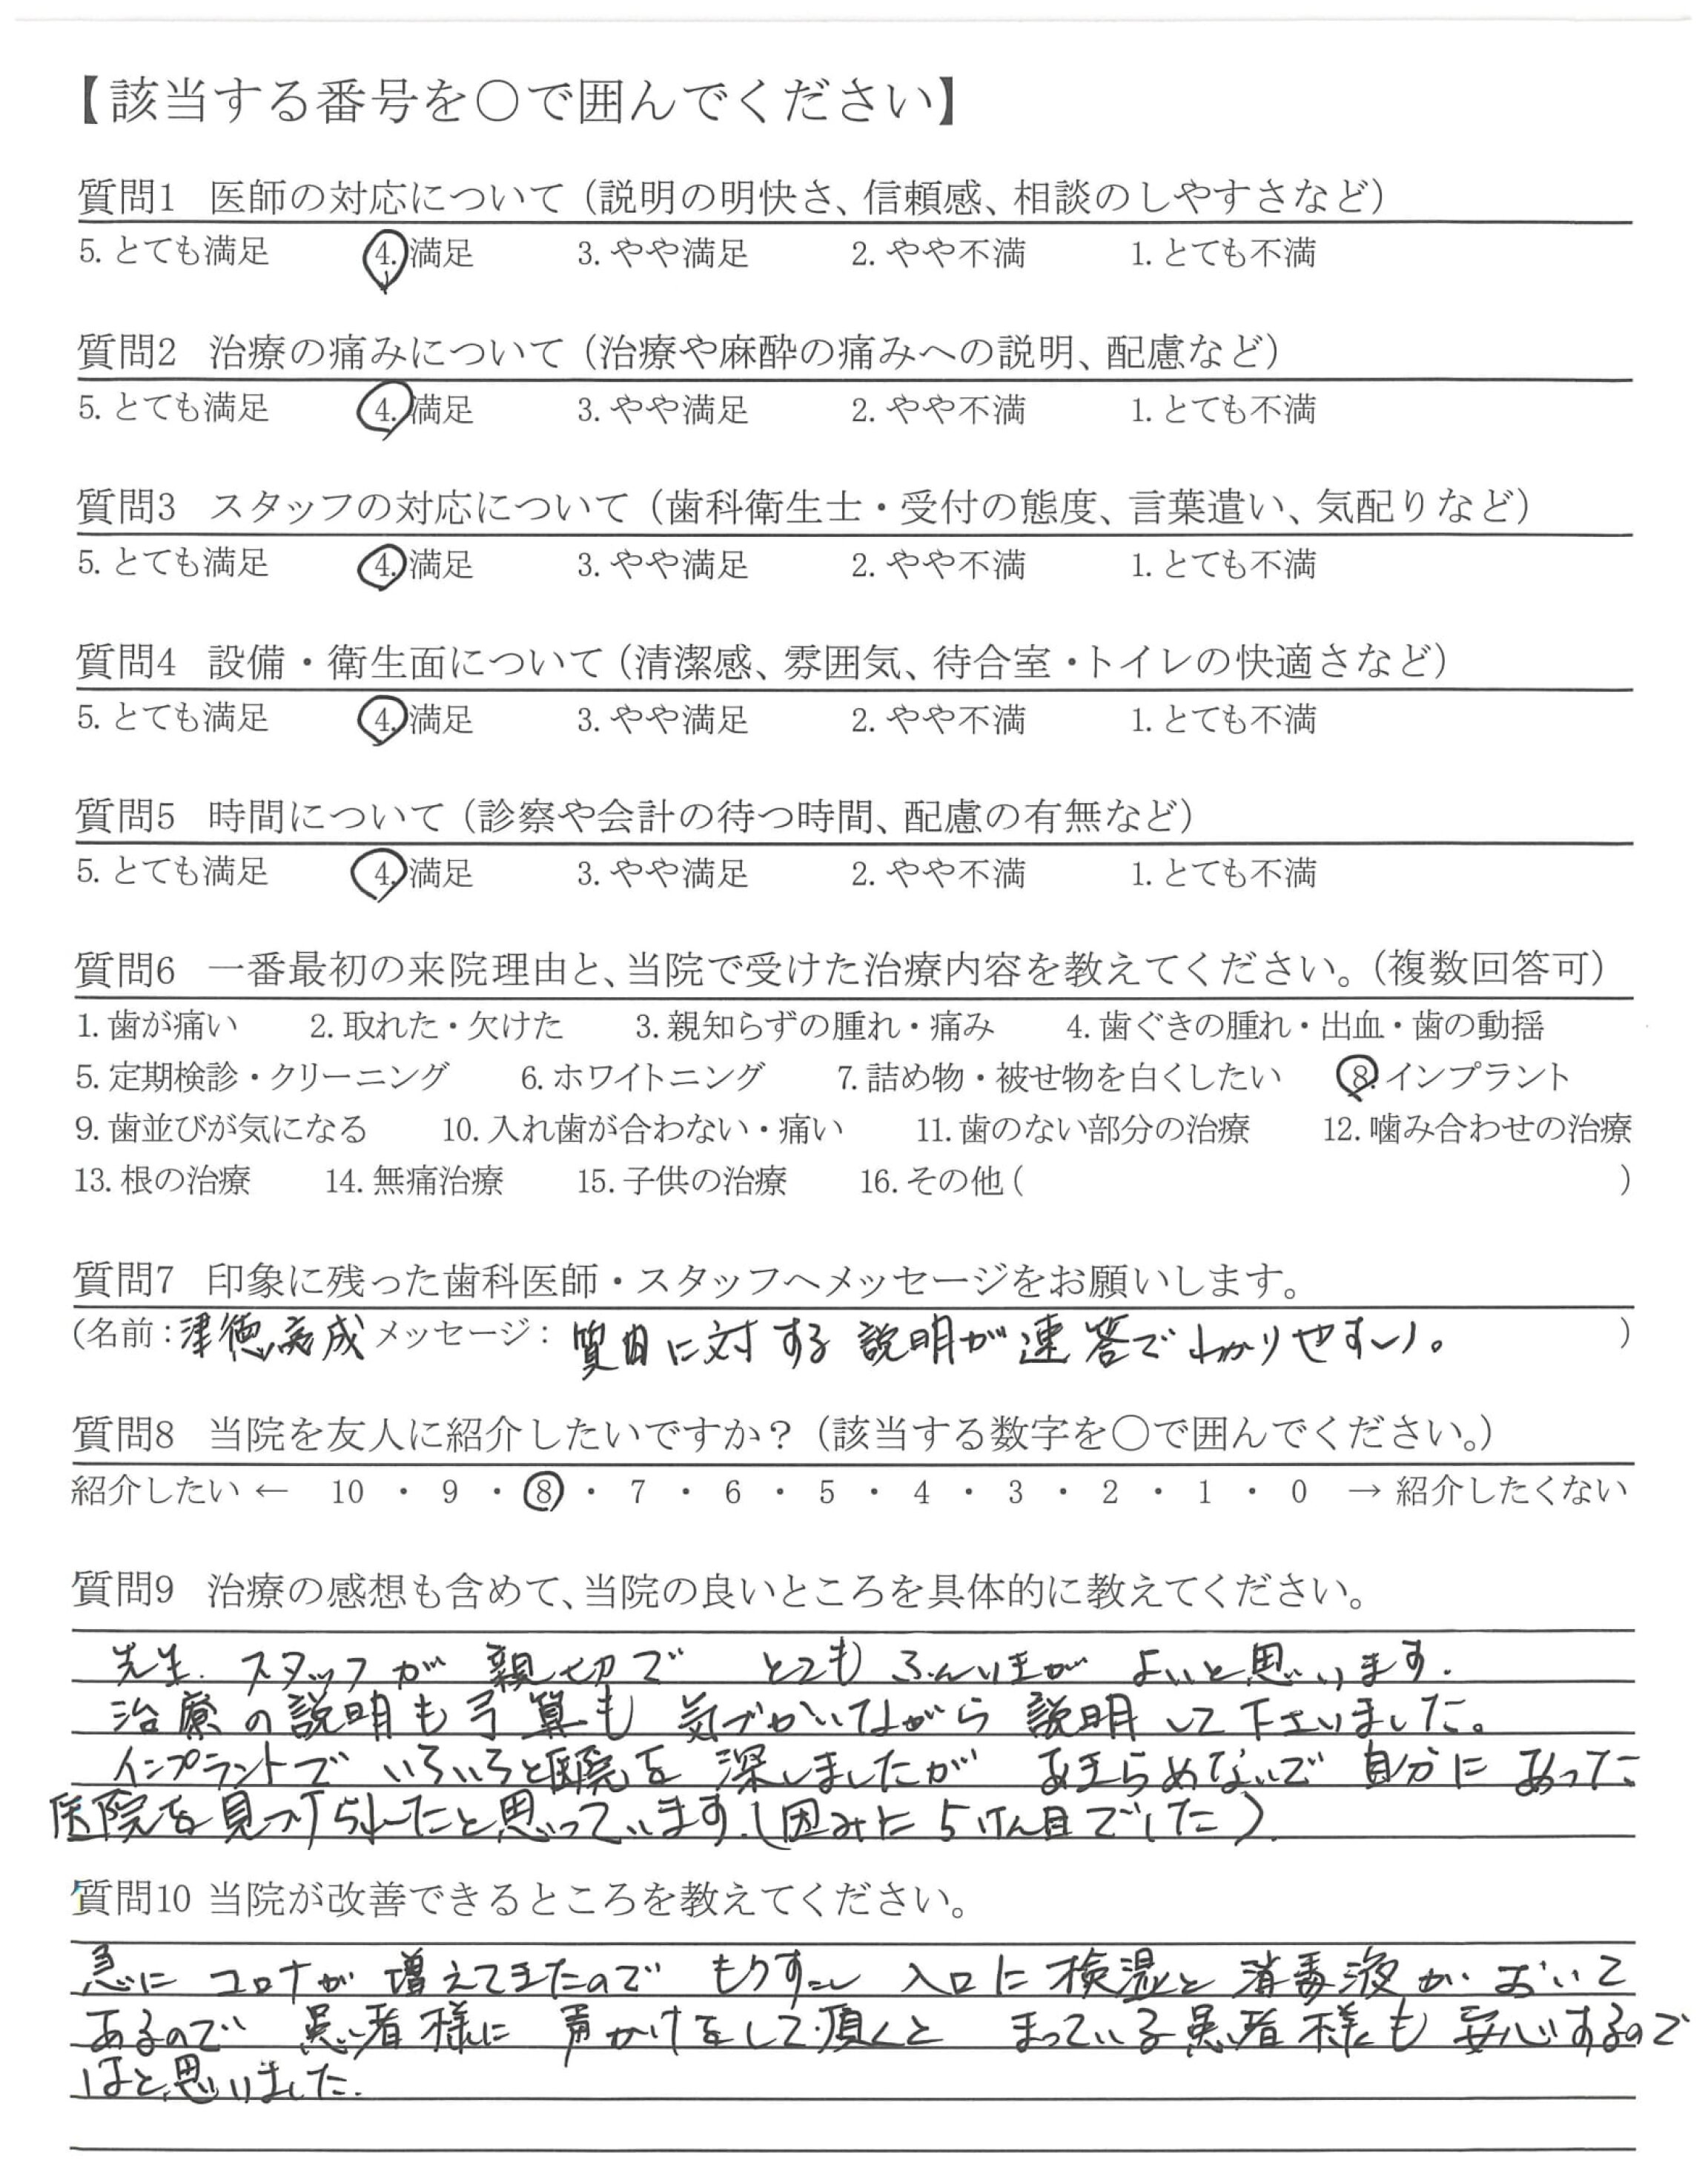 【該当する番号を〇で囲んでください】
質問1 医師の対応について（説明の明快さ、信頼感、相談のしやすさなど）
5. とても満足 4. 満足 3. やや満足 2. やや不満 1. とても不満
質問2 治療の痛みについて（治療や麻酔の痛みへの説明、配慮など）
5. とても満足 4. 満足 3. やや満足 2. やや不満 1. とても不満
質問3 スタッフの対応について（歯科衛生士・受付の態度、言葉遣い、気配りなど）
5. とても満足 4. 満足 3. やや満足 2. やや不満 1. とても不満
質問4 設備・衛生面について（清潔感、雰囲気、待合室・トイレの快適さなど）
5. とても満足 4. 満足 3. やや満足 2. やや不満 1. とても不満
質問5 時間について（診察や会計の待つ時間、配慮の有無など）
5. とても満足 4. 満足 3. やや満足 2. やや不満 1. とても不満
質問6 一番最初の来院理由と、当院で受けた治療内容を教えてください。（複数回答可）
1. 歯が痛い 2. 取れた・欠けた 3. 親知らずの腫れ・痛み 4. 歯ぐきの腫れ・出血・歯の動揺
5. 定期検診・クリーニング 6. ホワイトニング 7. 詰め物・被せ物を白くしたい 8. インプラント
9. 歯並びが気になる 10. 入れ歯が合わない・痛い 11. 歯のない部分の治療 12. 噛み合わせの治療
13. 根の治療 14. 無痛治療 15. 子供の治療 16. その他 ( )
質問7 印象に残った歯科医師・スタッフへメッセージをお願いします。
（名前：津徳 成 メッセージ： に対する 説明が 速答で わかりやすい。 ）
質問8 当院を友人に紹介したいですか？（該当する数字を〇で囲んでください。）
紹介したい ← 10 ・ 9 ・ 8 ・ 7 ・ 6 ・ 5 ・ 4 ・ 3 ・ 2 ・ 1 ・ 0 → 紹介したくない
質問9 治療の感想も含めて、当院の良いところを具体的に教えてください。
先生. スタッフが 親切で とても ふんいきが よいと思います.
治療の説明も予算も 気づかいながら 説明して下さいました。
インプラントで いろいろと医院を 深しましたが あきらめないで 自分に あった
医院を見つけられたと思っています.(因みに 5けん目でした).
質問10 当院が改善できるところを教えてください。
急に コロナが 増えてきたので もうすこし 入口に 検温と 消毒液が おいて
あるので 患者様に 声かけをして頂くと まっている患者様も 安心するので
はと思いました.